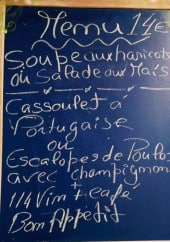 Menu 14€
Soupe aux haricots
ou Salade aux Maïs
Cassoulet a'
Portugaise
ou
Escalopes de Poulo
avec champignon
+
1/4 Vim + cafe
Bom Appetit